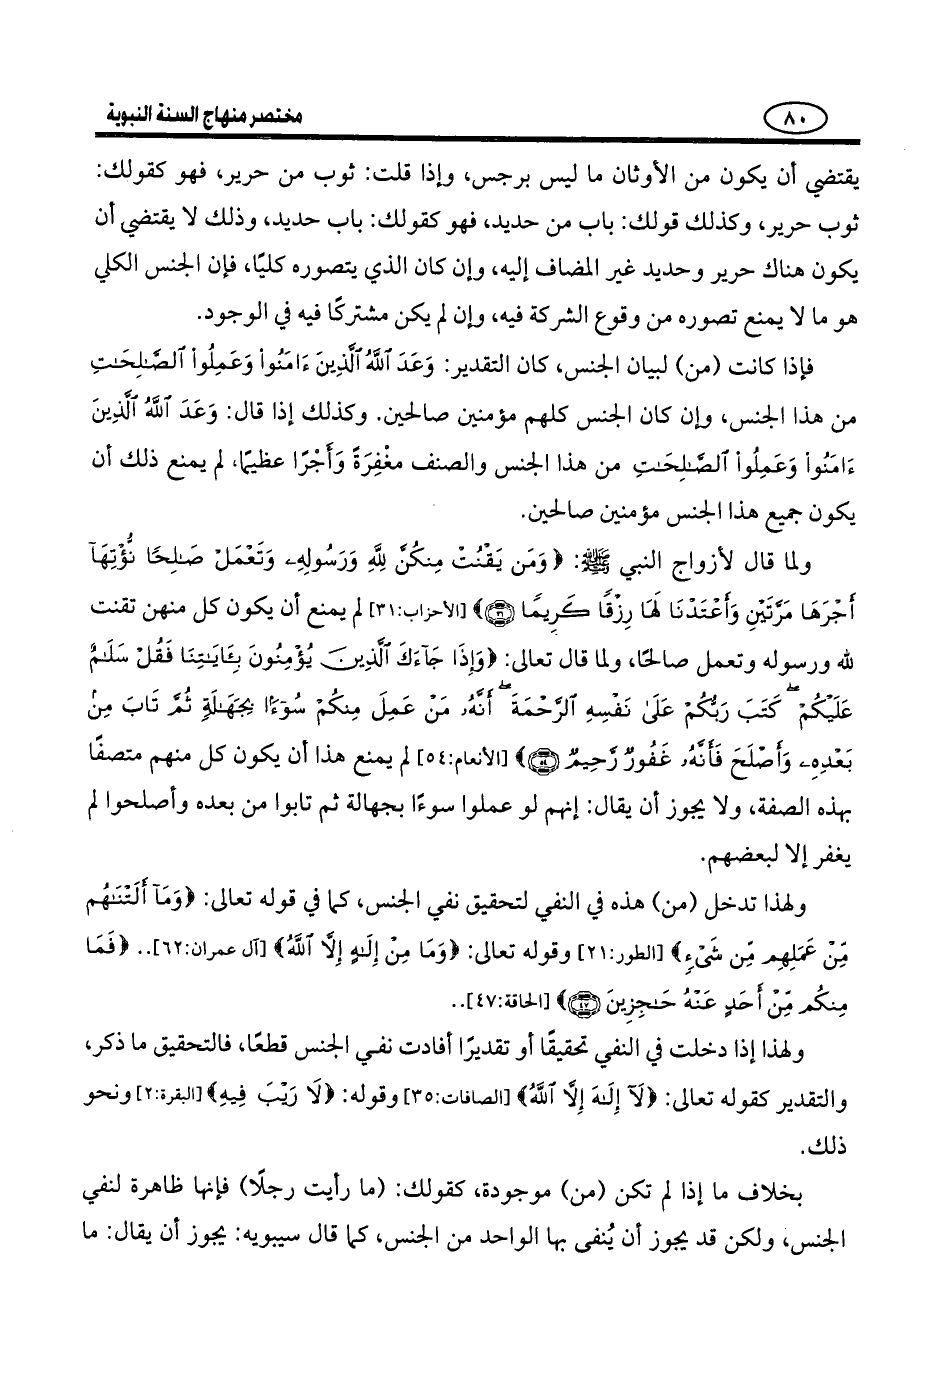 ٨٠ مختصر منهاج السنة النبوية
يقتضي أن يكون من الأوثان ما ليس برجس، وإذا قلت: ثوب من حرير، فهو كقولك:
ثوب حرير، وكذلك قولك: باب من حديد، فهو كقولك: باب حديد، وذلك لا يقتضي أن
يكون هناك حرير وحديد غير المضاف إليه، وإن كان الذي يتصوره كليًا، فإن الجنس الكلي
هو ما لا يمنع تصوره من وقوع الشركة فيه، وإن لم يكن مشتركًا فيه في الوجود.
فإذا كانت (من) لبيان الجنس، كان التقدير: وَعَدَ ٱللَّهُ ٱلَّذِينَ ءَامَنُواْ وَعَمِلُواْ ٱلصَّٰلِحَٰتِ
من هذا الجنس، وإن كان الجنس كلهم مؤمنين صالحين. وكذلك إذا قال: وَعَدَ ٱللَّهُ ٱلَّذِينَ
ءَامَنُواْ وَعَمِلُواْ ٱلصَّٰلِحَٰتِ من هذا الجنس والصنف مغْفِرَةً وَأَجْرًا عظيمًا، لم يمنع ذلك أن
يكون جميع هذا الجنس مؤمنين صالحين.
ولما قال لأزواج النبي ﷺ: ﴿وَمَن يَقْنُتْ مِنكُنَّ لِلَّهِ وَرَسُولِهِۦ وَتَعْمَلْ صَٰلِحًا نُّؤْتِهَآ
أَجْرَهَا مَرَّتَيْنِ وَأَعْتَدْنَا لَهَا رِزْقًا كَرِيمًا ۝٣١﴾ [الأحزاب:٣١] لم يمنع أن يكون كل منهن تقنت
لله ورسوله وتعمل صالحًا، ولما قال تعالى: ﴿وَإِذَا جَآءَكَ ٱلَّذِينَ يُؤْمِنُونَ بِـَٔايَٰتِنَا فَقُلْ سَلَٰمٌ
عَلَيْكُمْ ۖ كَتَبَ رَبُّكُمْ عَلَىٰ نَفْسِهِ ٱلرَّحْمَةَ ۖ أَنَّهُۥ مَنْ عَمِلَ مِنكُمْ سُوٓءًۢا بِجَهَٰلَةٍ ثُمَّ تَابَ مِنۢ
بَعْدِهِۦ وَأَصْلَحَ فَأَنَّهُۥ غَفُورٌ رَّحِيمٌ ۝٥٤﴾ [الأنعام:٥٤] لم يمنع هذا أن يكون كل منهم متصفًا
بهذه الصفة، ولا يجوز أن يقال: إنهم لو عملوا سوءًا بجهالة ثم تابوا من بعده وأصلحوا لم
يغفر إلا لبعضهم.
ولهذا تدخل (من) هذه في النفي لتحقيق نفي الجنس، كما في قوله تعالى: ﴿وَمَآ أَلَتْنَٰهُم
مِّنْ عَمَلِهِم مِّن شَىْءٍ﴾ [الطور:٢١] وقوله تعالى: ﴿وَمَا مِنْ إِلَٰهٍ إِلَّا ٱللَّهُ﴾ [آل عمران:٦٢].. ﴿فَمَا
مِنكُم مِّنْ أَحَدٍ عَنْهُ حَٰجِزِينَ ۝٤٧﴾ [الحاقة:٤٧]..
ولهذا إذا دخلت في النفي تحقيقًا أو تقديرًا أفادت نفي الجنس قطعًا، فالتحقيق ما ذكر،
والتقدير كقوله تعالى: ﴿لَآ إِلَٰهَ إِلَّا ٱللَّهُ﴾ [الصافات:٣٥] وقوله: ﴿لَا رَيْبَ فِيهِ﴾ [البقرة:٢] ونحو
ذلك.
بخلاف ما إذا لم تكن (من) موجودة، كقولك: (ما رأيت رجلًا) فإنها ظاهرة لنفي
الجنس، ولكن قد يجوز أن يُنفى بها الواحد من الجنس، كما قال سيبويه: يجوز أن يقال: ما